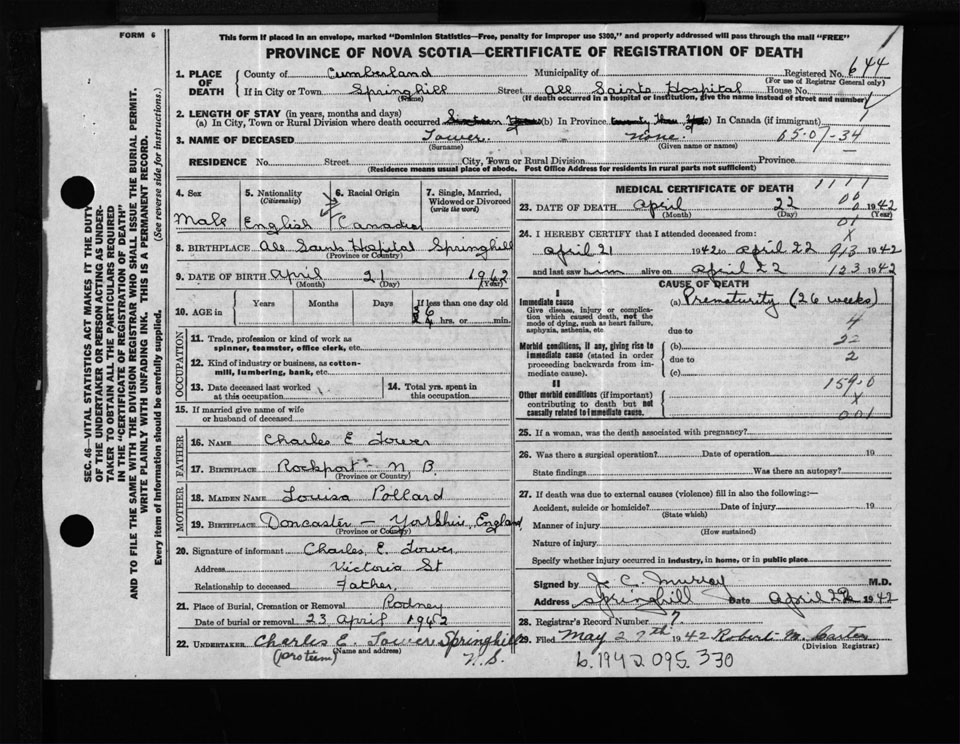 FORM 6
This form if placed in an envelope, marked "Dominion Statistics—Free, penalty for improper use $300," and properly addressed will pass through the mail "FREE"
PROVINCE OF NOVA SCOTIA—CERTIFICATE OF REGISTRATION OF DEATH
1. PLACE OF DEATH County of Cumberland Municipality of Registered No. 644
(For use of Registrar General only)
If in City or Town Springhill Street All Saints Hospital House No.
(Name) (If death occurred in a hospital or institution, give the name instead of street and number)
2. LENGTH OF STAY (in years, months and days)
(a) In City, Town or Rural Division where death occurred (b) In Province (c) In Canada (if immigrant)
3. NAME OF DECEASED Tower none. 65-07-34
(Surname) (Given name or names)
RESIDENCE No. Street City, Town or Rural Division Province
(Residence means usual place of abode. Post Office Address for residents in rural parts not sufficient)
SEC. 46—VITAL STATISTICS ACT MAKES IT THE DUTY
OF THE UNDERTAKER OR PERSON ACTING AS UNDER-
TAKER TO OBTAIN ALL THE PARTICULARS REQUIRED
IN THE "CERTIFICATE OF REGISTRATION OF DEATH"
AND TO FILE THE SAME WITH THE DIVISION REGISTRAR WHO SHALL ISSUE THE BURIAL PERMIT.
WRITE PLAINLY WITH UNFADING INK. THIS IS A PERMANENT RECORD.
Every item of information should be carefully supplied. (See reverse side for instructions.)
4. Sex 5. Nationality (Citizenship) 6. Racial Origin 7. Single, Married, Widowed or Divorced (write the word)
Male English Canadian
8. BIRTHPLACE All Saints Hospital Springhill
(Province or Country)
9. DATE OF BIRTH April 21 1942
(Month) (Day) (Year)
10. AGE in Years Months Days If less than one day old
hrs. or min.
OCCUPATION
11. Trade, profession or kind of work as spinner, teamster, office clerk, etc.
12. Kind of industry or business, as cotton-mill, lumbering, bank, etc.
13. Date deceased last worked at this occupation 14. Total yrs. spent in this occupation
15. If married give name of wife or husband of deceased
FATHER
16. NAME Charles E Tower
17. BIRTHPLACE Rockport - N. B.
(Province or Country)
MOTHER
18. MAIDEN NAME Louisa Pollard
19. BIRTHPLACE Doncaster — Yorkshire, England
(Province or Country)
20. Signature of informant Charles. E. Tower.
Address Victoria St
Relationship to deceased Father,
21. Place of Burial, Cremation or Removal Rodney
Date of burial or removal 23 April 1942
22. UNDERTAKER Charles E. Tower Springhill
(pro tem) (Name and address) N.S.
MEDICAL CERTIFICATE OF DEATH
23. DATE OF DEATH April 22 1942
(Month) (Day) (Year)
24. I HEREBY CERTIFY that I attended deceased from:
April 21 1942 to April 22 1942
and last saw him alive on April 22 1942
CAUSE OF DEATH
I
Immediate cause (a) Prematurity (26 weeks)
Give disease, injury or complication which caused death, not the mode of dying, such as heart failure, asphyxia, asthenia, etc.
due to
Morbid conditions, if any, giving rise to immediate cause (stated in order proceeding backwards from immediate cause).
(b)
due to
(c)
II
Other morbid conditions (if important) contributing to death but not causally related to immediate cause.
159.0
25. If a woman, was the death associated with pregnancy?
26. Was there a surgical operation? Date of operation 19
State findings Was there an autopsy?
27. If death was due to external causes (violence) fill in also the following:—
Accident, suicide or homicide? Date of injury 19
(State which)
Manner of injury
(How sustained)
Nature of injury
Specify whether injury occurred in industry, in home, or in public place
Signed by J. C. Murray M.D.
Address Springhill Date April 22 1942
28. Registrar's Record Number 7
29. Filed May 27th 1942 Robert M. Carter
(Division Registrar)
b.1942.095.330